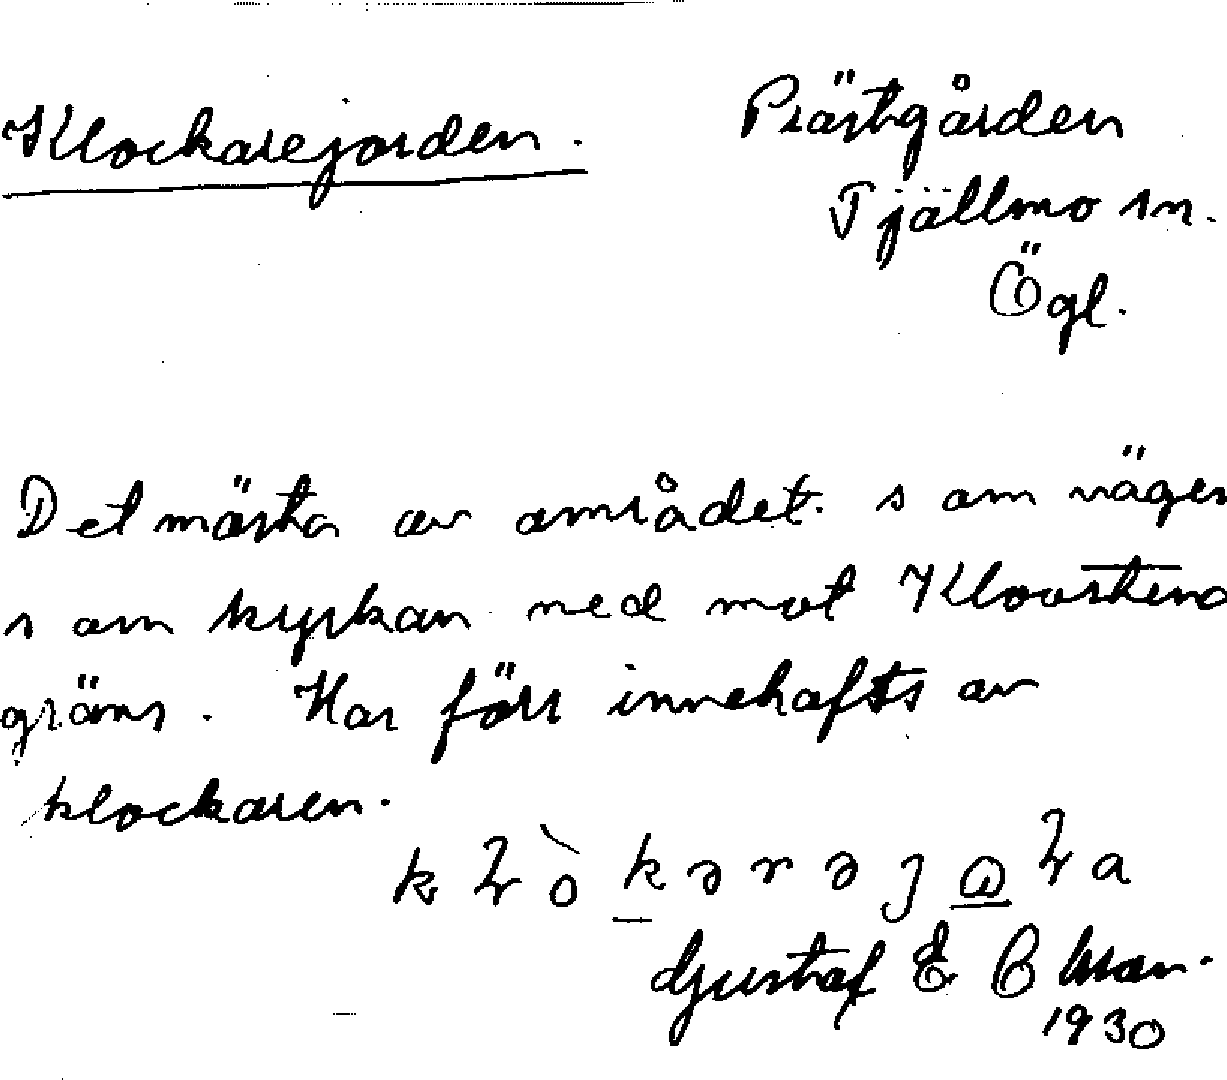 Klockarejorden.
Prästgården
Tjällmo sn.
Ögl.
Det mästa av området som väger
som kyrkan ned mot Kloosten
gräns. Har förr innehafts av
klockaren.
Gustaf E
1930